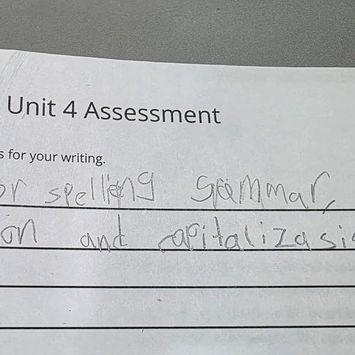 Unit 4 Assessment
s for your writing.
or spelling grammar,
on and capitalizasi